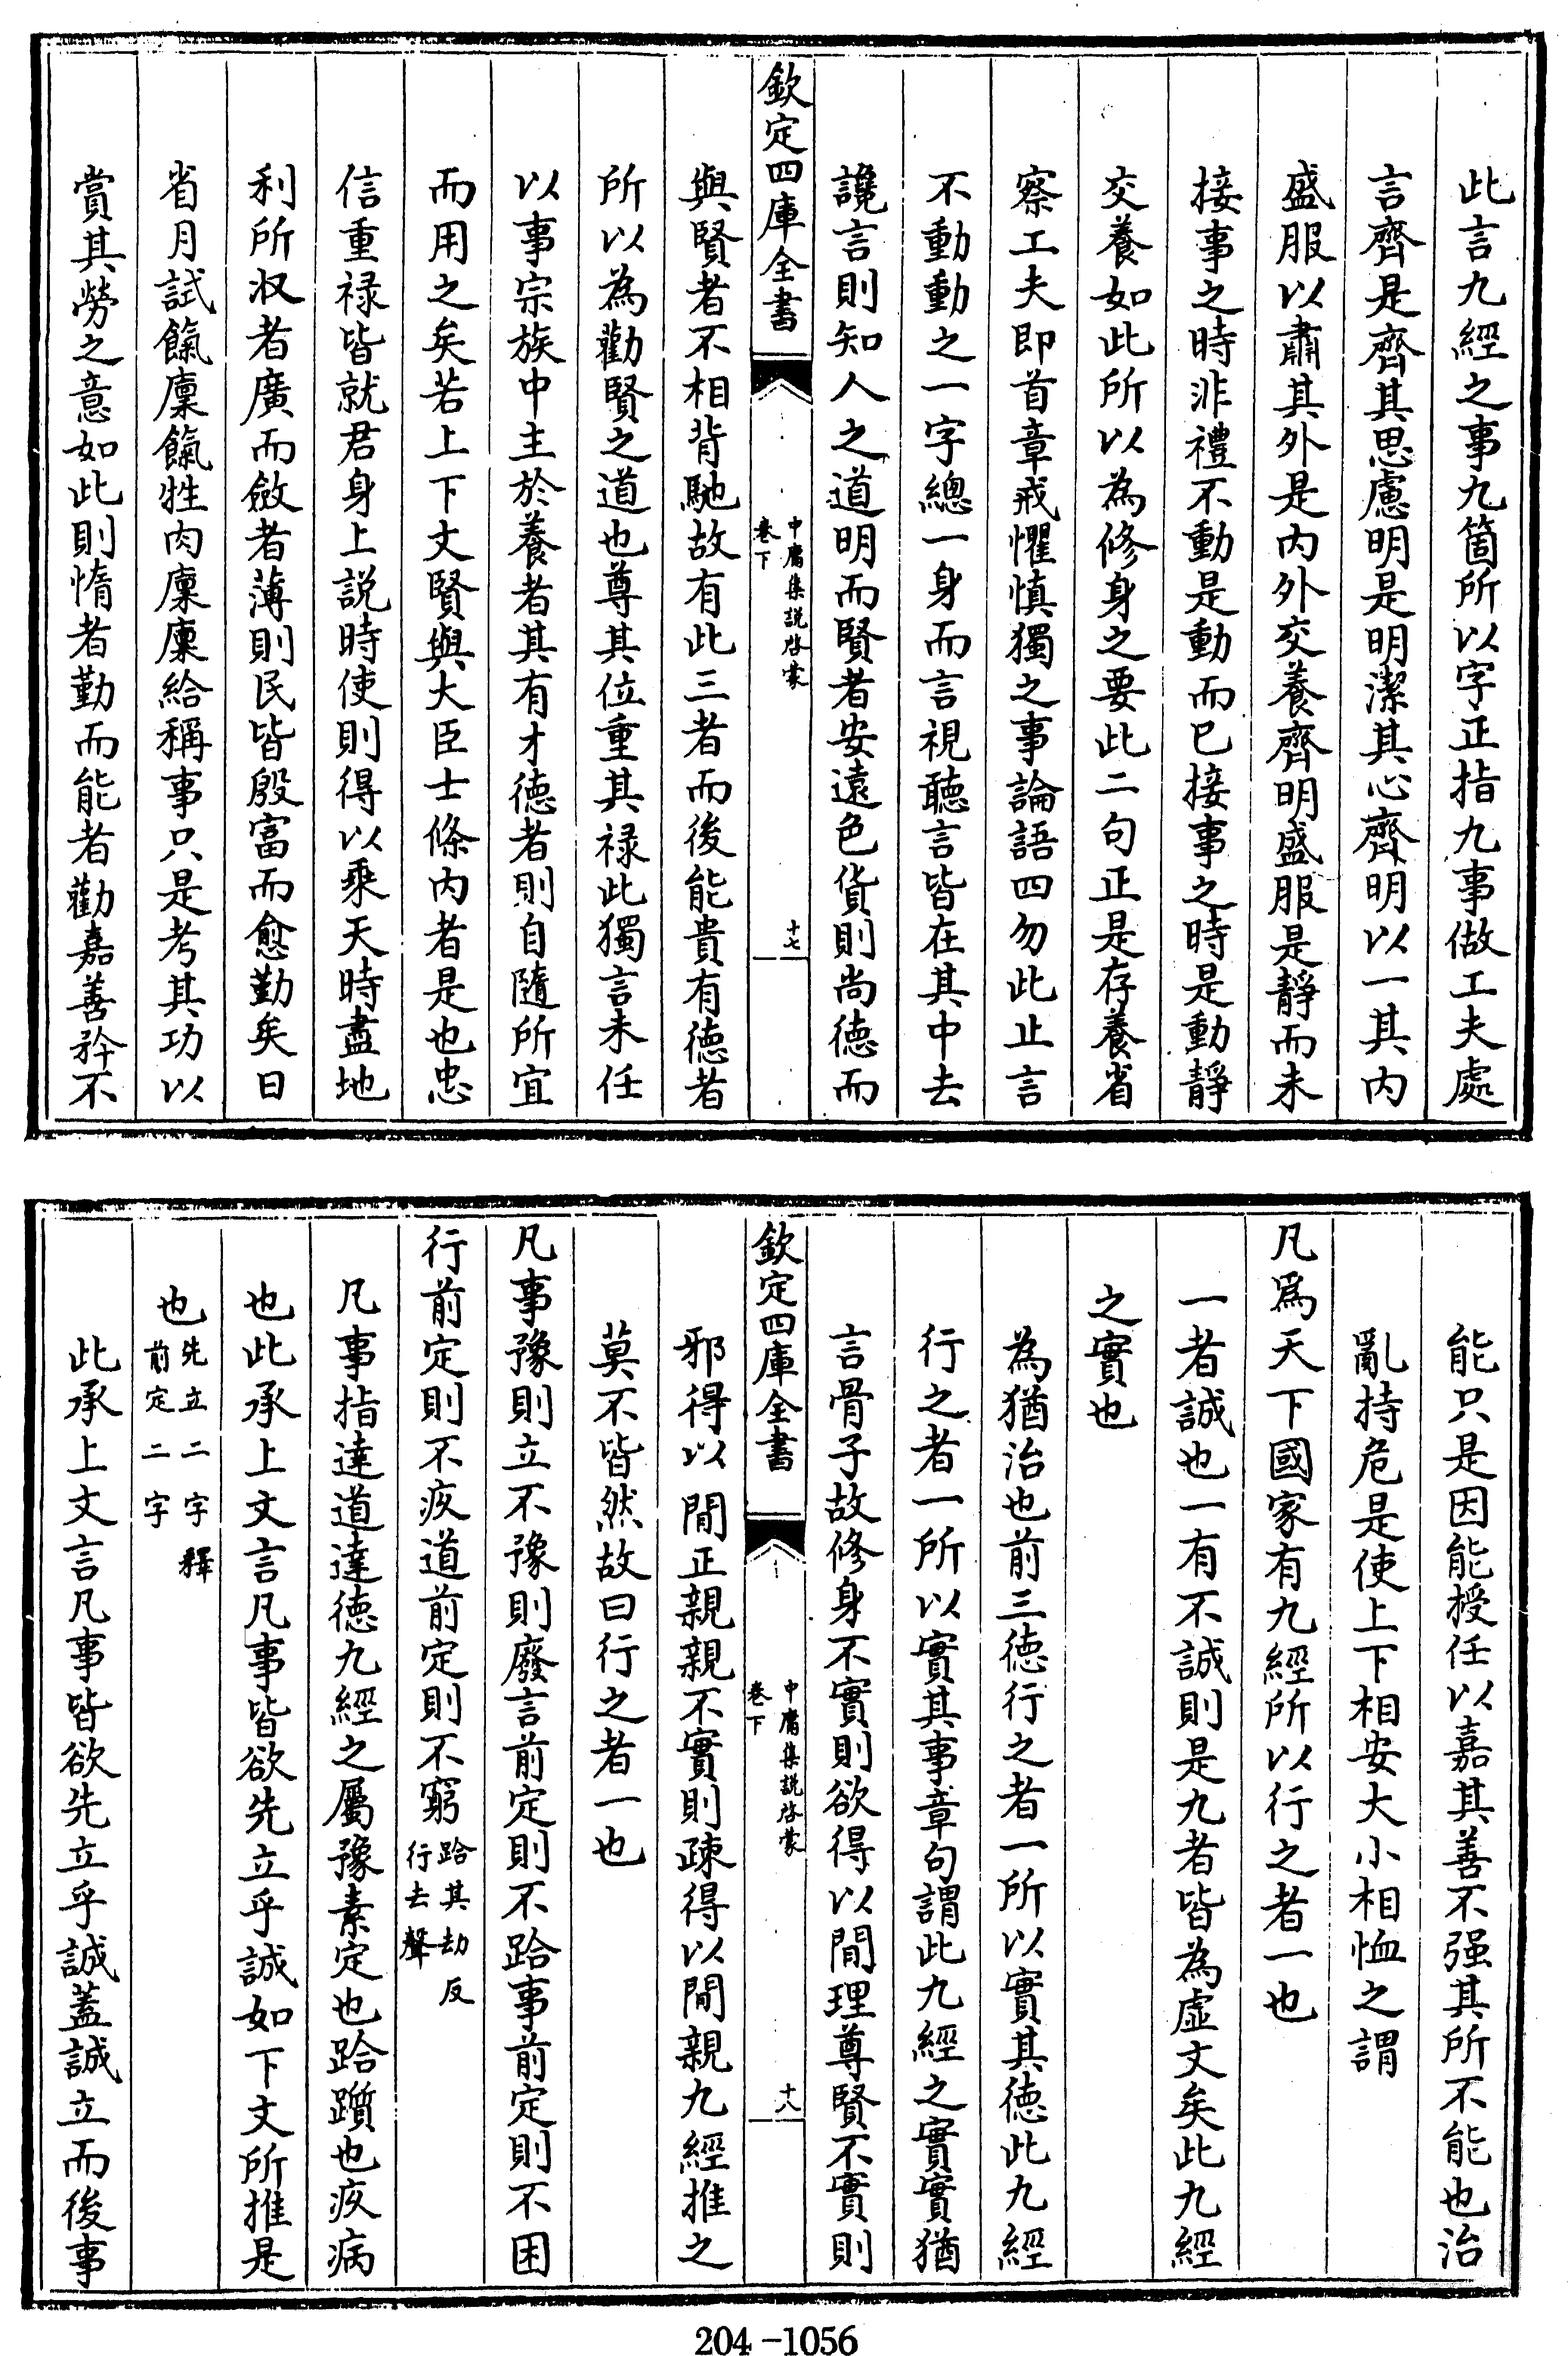 此言九經之事九箇所以字正指九事做工夫處
言齊是齊其思慮明是明潔其心齊明以一其内
盛服以肅其外是内外交養齊明盛服是靜而未
接事之時非禮不動是動而已接事之時是動靜
交養如此所以為修身之要此二句正是存養省
察工夫即首章戒懼慎獨之事論語四勿此止言
不動動之一字總一身而言視聽言皆在其中去
讒言則知人之道明而賢者安遠色貨則尚德而
欽定四庫全書
中庸集說啓蒙
卷下
十七
與賢者不相背馳故有此三者而後能貴有德者
所以為勸賢之道也尊其位重其禄此獨言未任
以事宗族中主於養者其有才德者則自隨所宜
而用之矣若上下文賢與大臣士條内者是也忠
信重禄皆就君身上説時使則得以乘天時盡地
利所收者廣而斂者薄則民皆殷富而愈勤矣日
省月試餼廩餼牲肉廩廩給稱事只是考其功以
賞其勞之意如此則惰者勤而能者勸嘉善矜不
能只是因能授任以嘉其善不强其所不能也治
亂持危是使上下相安大小相恤之謂
凡爲天下國家有九經所以行之者一也
一者誠也一有不誠則是九者皆為虛文矣此九經
之實也
為猶治也前三德行之者一所以實其德此九經
行之者一所以實其事章句謂此九經之實實猶
言骨子故修身不實則欲得以間理尊賢不實則
欽定四庫全書
中庸集說啓蒙
卷下
十八
邪得以間正親親不實則疎得以間親九經推之
莫不皆然故曰行之者一也
凡事豫則立不豫則廢言前定則不跲事前定則不困
行前定則不疚道前定則不窮跲其劫反行去聲
凡事指達道達德九經之屬豫素定也跲躓也疚病
也此承上文言凡事皆欲先立乎誠如下文所推是
也先立二字釋前定二字
此承上文言凡事皆欲先立乎誠蓋誠立而後事
204-1056